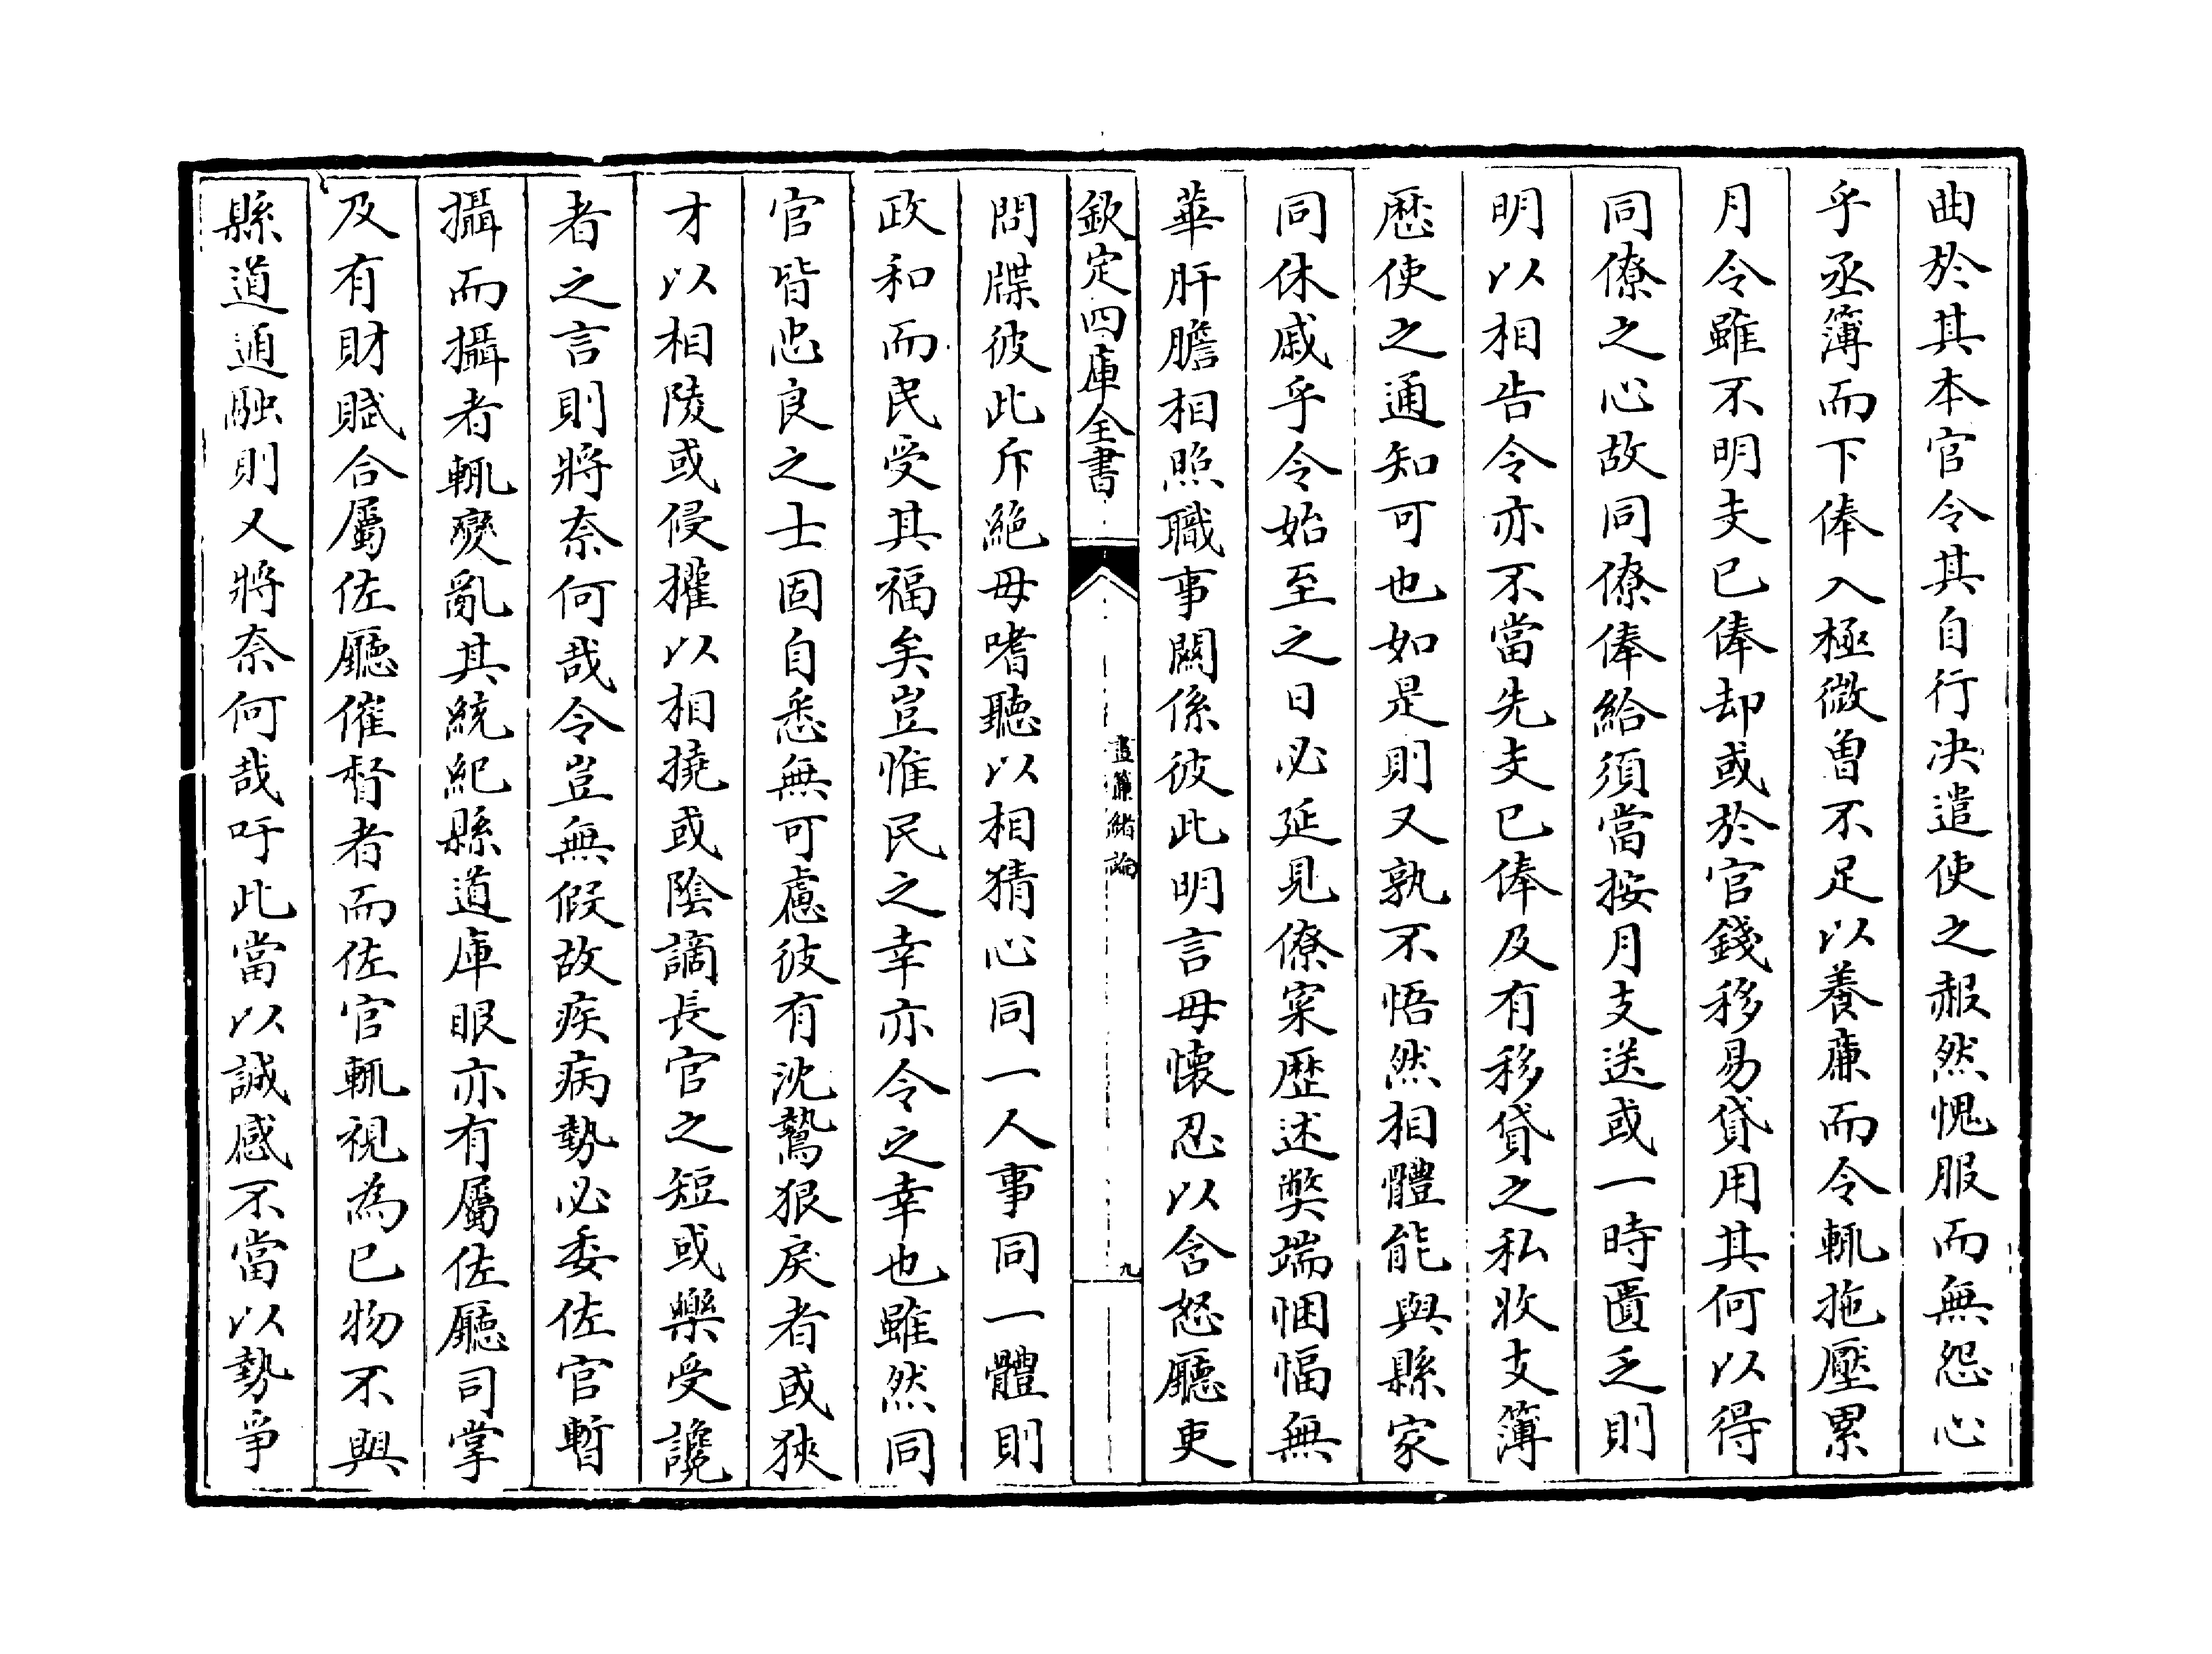 曲於其本官令其自行决遣使之赧然愧服而無怨心
乎丞簿而下俸入極微曽不足以養廉而令輒拖壓累
月令雖不明支已俸却或於官錢移易貸用其何以得
同僚之心故同僚俸給須當按月支送或一時匱乏則
明以相告令亦不當先支已俸及有移貸之私收支簿
厯使之通知可也如是則又孰不悟然相體能與縣家
同休戚乎令始至之日必延見僚寀歴述弊端悃愊無
華肝膽相照職事闗係彼此明言毋懐忍以含怒廳吏
欽定四庫全書
晝簾緒論
九
問牒彼此斥絶毋嗜聽以相猜心同一人事同一體則
政和而民受其福矣豈惟民之幸亦令之幸也雖然同
官皆忠良之士固自悉無可慮彼有沈鷙狠戾者或狹
才以相陵或侵權以相撓或陰謫長官之短或樂受讒
者之言則將奈何哉令豈無假故疾病勢必委佐官暫
攝而攝者輒變亂其統紀縣道庫眼亦有屬佐廳司掌
及有財賦合屬佐廳催督者而佐官輒視為已物不與
縣道通融則又將奈何哉吁此當以誠感不當以勢爭